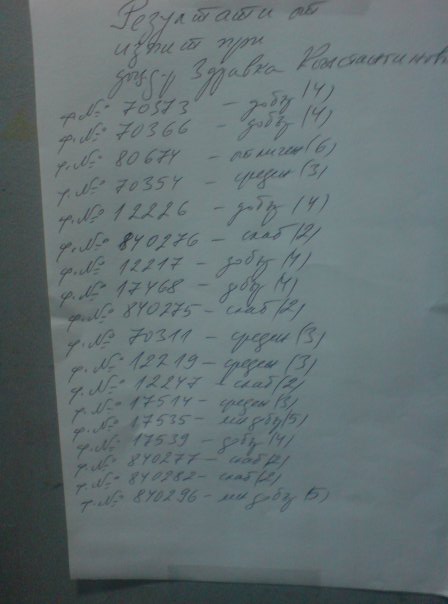 Резултати от
изпит при
доц. д-р Здравка Константинова
ф.№ 70373 - добър (4)
ф.№ 70366 - добър (4)
ф.№ 80674 - отличен (6)
ф.№ 70354 - среден (3)
ф.№ 12226 - добър (4)
ф.№ 840276 - слаб (2)
ф.№ 12217 - добър (4)
ф.№ 17468 - добър (4)
ф.№ 840275 - слаб (2)
ф.№ 70311 - среден (3)
ф.№ 12219 - среден (3)
ф.№ 12247 - слаб (2)
ф.№ 17514 - среден (3)
ф.№ 17535 - мн. добър (5)
ф.№ 17539 - добър (4)
ф.№ 840277 - слаб (2)
ф.№ 840282 - слаб (2)
ф.№ 840296 - мн. добър (5)